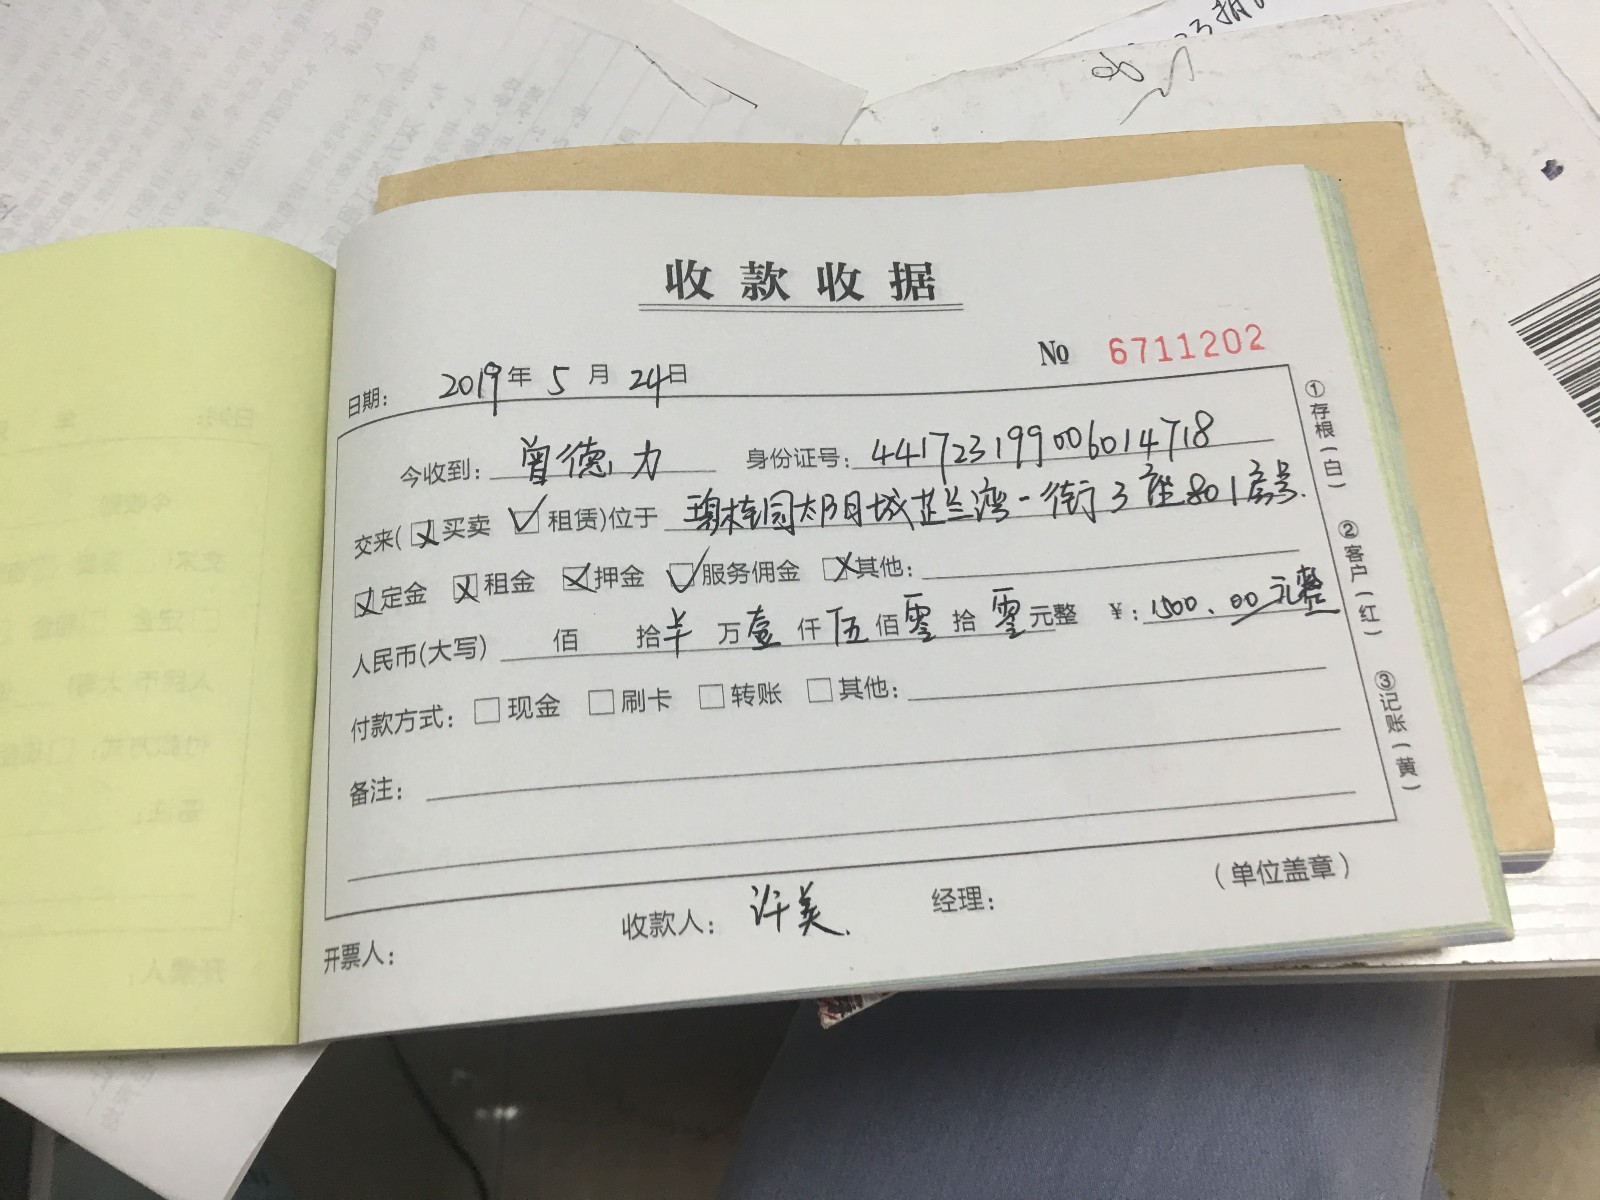 收款收据
№ 6711202
日期: 2019年 5 月 24日
今收到: 曾德力 身份证号: 441723199006014718
交来(☒买卖 ☑租赁)位于 碧桂园太阳城芷兰湾一街3座801房号.
☒定金 ☒租金 ☒押金 ☑服务佣金 ☒其他:
人民币(大写) 佰 拾 半 万 壹 仟 伍 佰 零 拾 零 元整 ¥: 1500.00元整
付款方式: □现金 □刷卡 □转账 □其他:
备注:
(单位盖章)
开票人: 收款人: 许美. 经理:
①存根(白)
②客户(红)
③记账(黄)